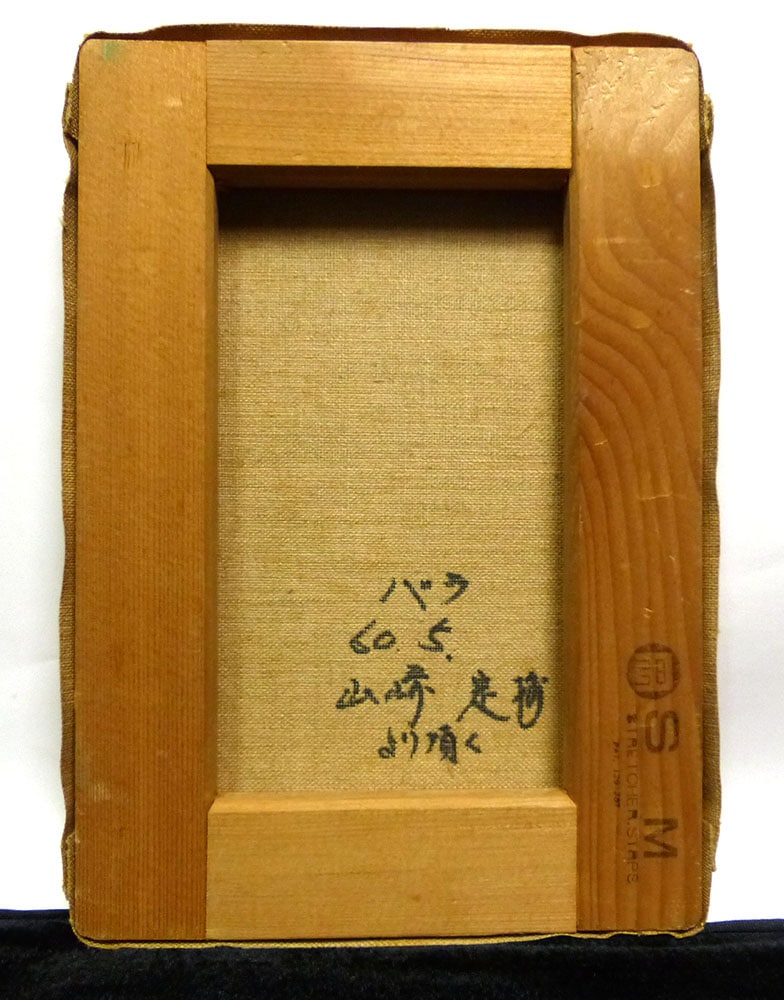 バラ
60.5.
山崎
より頂く
S M
STRETCHER, STRIPS